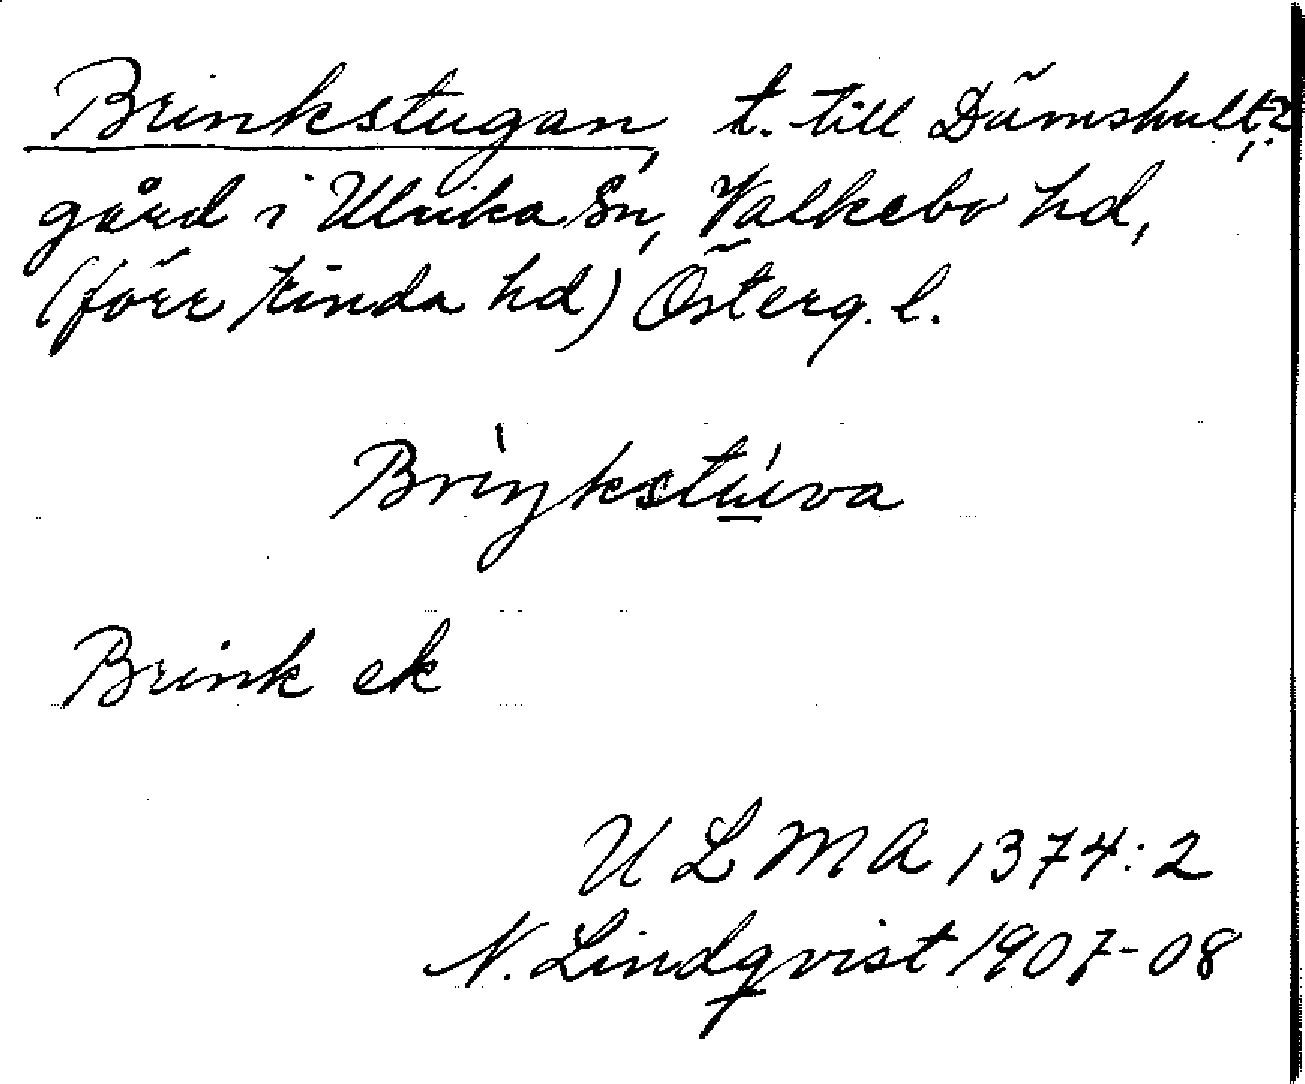 Brinkstugan, t. till Dämshult,
gård i Ulrika sn, Valkebo hd,
(förr Kinda hd) Österg. l.
Briŋkstu̲va
Brink ek
ULMA 1374:2
N. Lindqvist 1907-08